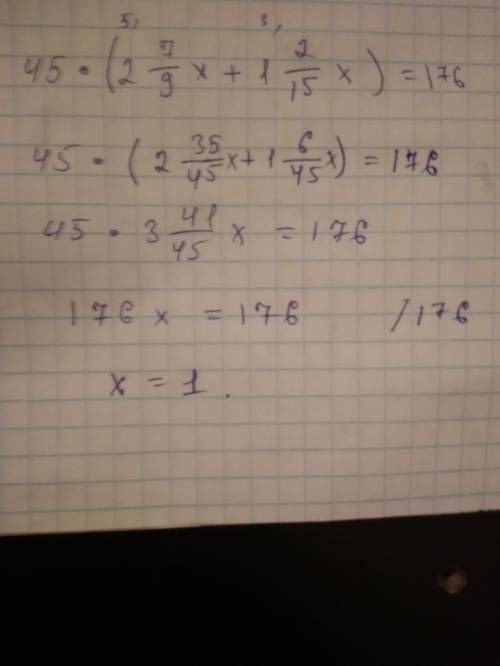 5, 3,
45 • (2 7/9 x + 1 2/15 x) = 176
45 • (2 35/45 x + 1 6/45 x) = 176
45 • 3 41/45 x = 176
176 x = 176 /176
x = 1.